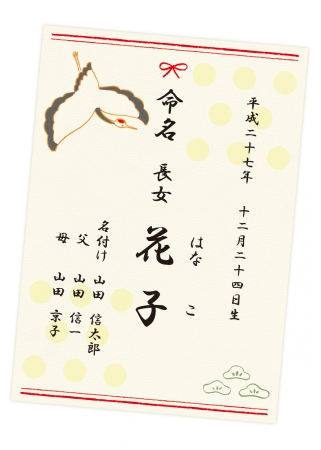 平成二十七年 十二月二十四日生
命名 長女 花子
はなこ
名付け 山田 信太郎
父 山田 信一
母 山田 京子